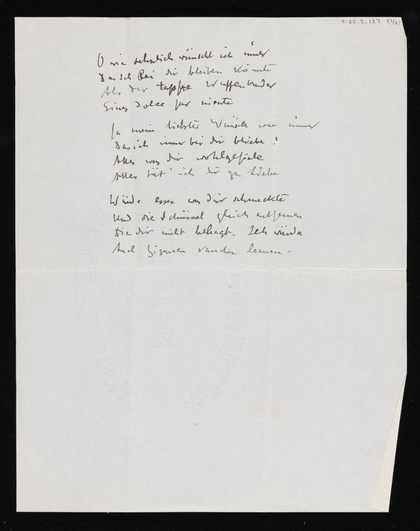 O wie sehnlich wünscht ich immer
Das ich Bei dir bleiben könnte
Als der tapfre Waffenbruder
Eines Dolce far niente
Ja mein liebster Wunsch war immer
Das ich immer bei dir bliebe!
Alles was dir wohlgefiele
Alles tät' ich dir zu liebe
Würde essen was dir schmeckte
Und die Schüssel gleich entfernen
Die dir nicht behagt. Ich würde
Auch Zigarren rauchen lernen.